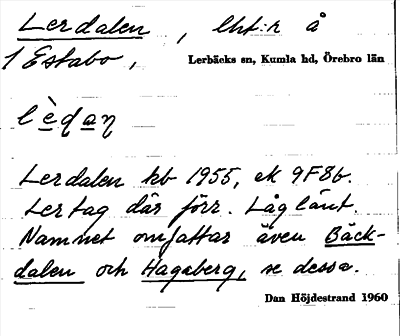 Lerdalen, lht:r å
1 Estabo, Lerbäcks sn, Kumla hd, Örebro län
lèdan
Lerdalen kb 1955, ek 9F8b.
Lertag där förr. Låglänt.
Namnet omfattar även Bäck-
dalen och Hagaberg, se dessa.
Dan Höjdestrand 1960